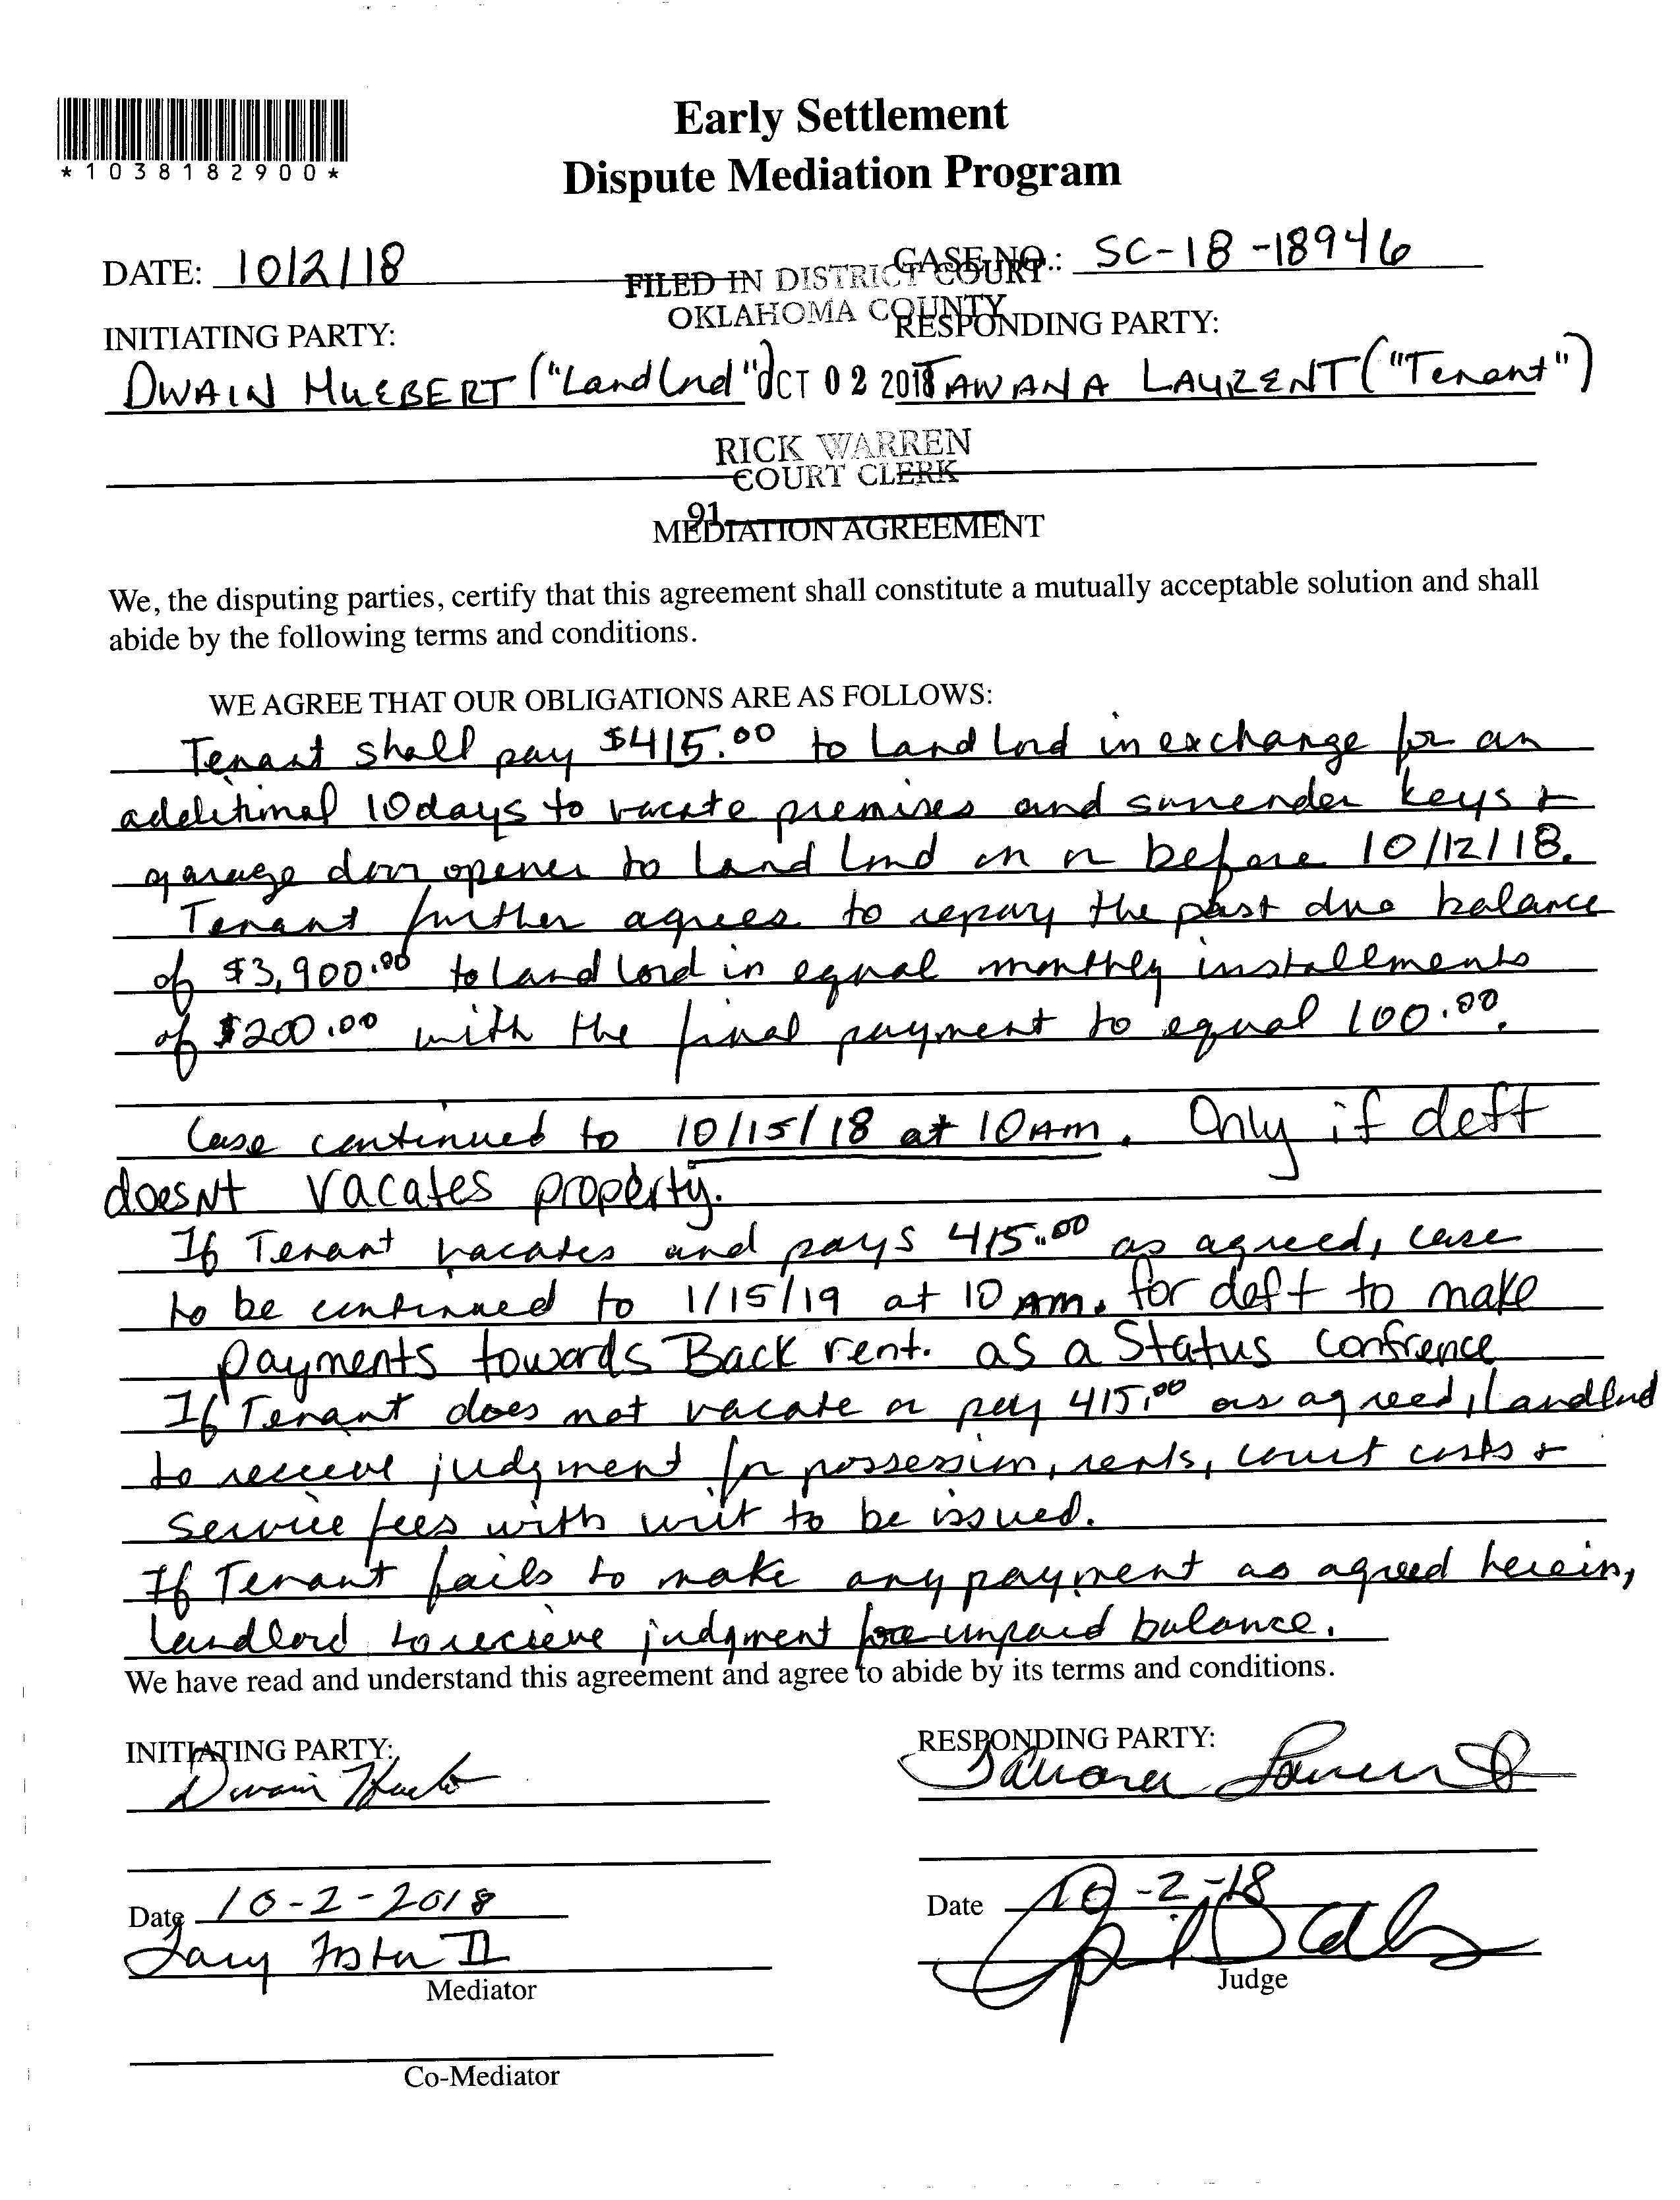 *1038182900*
Early Settlement
Dispute Mediation Program
DATE: 10/2/18
CASE NO.: SC-18-18946
FILED IN DISTRICT COURT
OKLAHOMA COUNTY
INITIATING PARTY:
RESPONDING PARTY:
DWAIN HUEBERT ("Landlord")
OCT 02 2018
TAWANA LAURENT ("Tenant")
RICK WARREN
COURT CLERK
91
MEDIATION AGREEMENT
We, the disputing parties, certify that this agreement shall constitute a mutually acceptable solution and shall
abide by the following terms and conditions.
WE AGREE THAT OUR OBLIGATIONS ARE AS FOLLOWS:
Tenant shall pay $415.00 to Landlord in exchange for an
additional 10 days to vacate premises and surrender keys &
garage door opener to landlord on or before 10/12/18.
Tenant further agrees to repay the past due balance
of $3,900.00 to landlord in equal monthly installments
of $200.00 with the final payment to equal 100.00.
Case continued to 10/15/18 at 10 AM. Only if deft
doesnt vacates property.
If Tenant vacates and pays 415.00 as agreed, case
to be continued to 1/15/19 at 10 AM. for deft to make
payments towards Back rent. as a Status confrence
If Tenant does not vacate or pay 415.00 as agreed, Landlord
to receive judgment for possession, rents, court costs &
service fees with writ to be issued.
If Tenant fails to make any payment as agreed herein,
landlord to recieve judgment for unpaid balance.
We have read and understand this agreement and agree to abide by its terms and conditions.
INITIATING PARTY:
RESPONDING PARTY:
Dwain Huebert
Tawana Laurent
Date 10-2-2018
Date 10-2-18
Foster II
Mediator
Judge
Co-Mediator